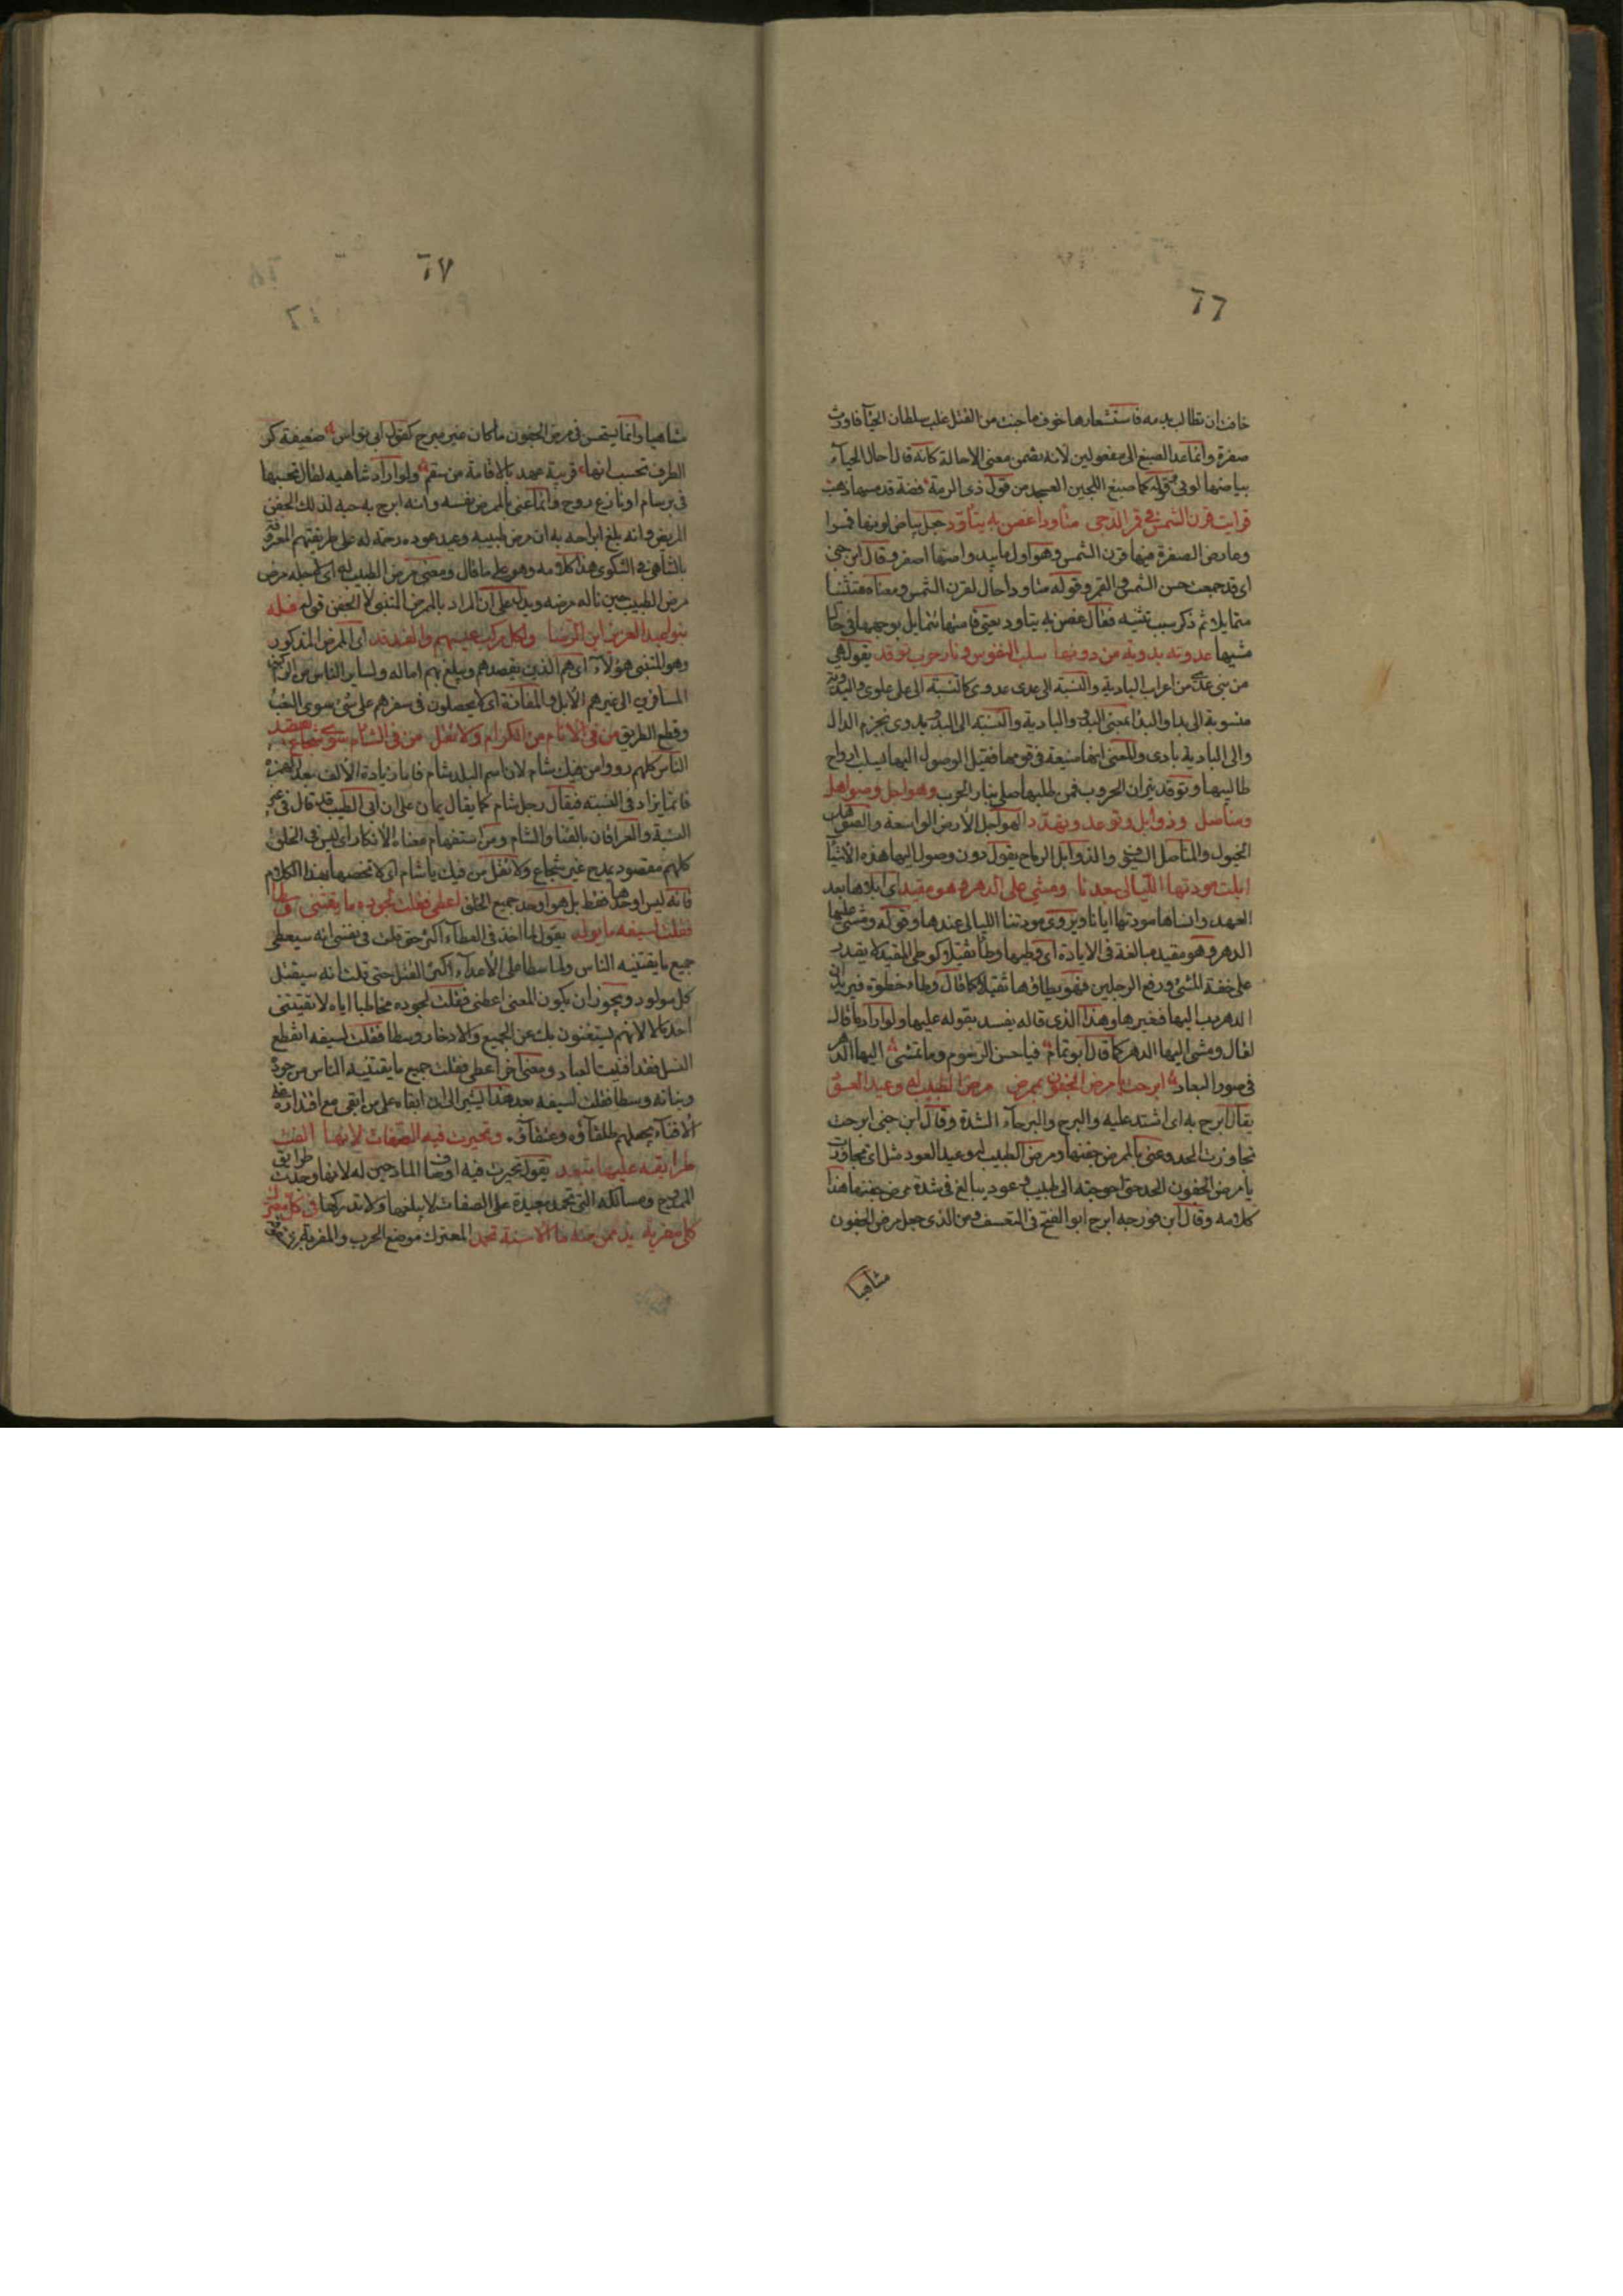 ٦٦
خافت ان تطالب بدمه فاستشعارها خوف ما جنت من القتل غلب سلطان الحيآ فاورث
صفرة وانما عدا الصبغ الى مفعولين لانه تضمن معنى الاحالة كانه قال احال الحيآء
بياضها لونى وقوله كما صبغ اللجين العسجد من قول ذى الرمة فضة قد مسها ذهب
فرايت قرن الشمس فى قمر الدجى متأودا غصن به يتأود جعل بياض لونها قمرا
وعارض الصفرة فيها قرن الشمس وهو اول ما يبدو امنها اصفر وقال ابن جنى
اى قد جمعت حسن الشمس والقمر وقوله متاودا حال لقرن الشمس ومعناه متثنيا
متمايلا ثم ذكر سبب تثنيه فقال غصن به يتاود يعنى قامتها تتمايل بوجهها فى حال
مشيها عدوية بدوية من دونها سلب النفوس ونار حرب توقد يقول هى
من بنى عدى من اعراب البادية والنسبة الى عدى عدوى كالنسبة الى على علوى والبدوية
منسوبة الى بدا والبدا بمعنى البدو والبادية والنسبة الى البدو بدوى بجزم الدال
والى البادية بادى والمعنى انها منيعة فى قومها فقبل الوصول اليها تسلب ارواح
طالبيها وتوقد نيران الحروب فمن طلبها صلى بنار الحرب وهواجل وصواهل
ومناصل وذوابل وتوعد وتهدد الهواجل الارض الواسعة والصواهل
الخيول والمناصل السيوف والذوابل الرماح يقول دون وصول اليها هذه الاشيآ
ابلت مودتها الليالى بعدنا ومشى عليها الدهر وهو مقيد اى ابلاها بعد
العهد وانساها مودتها ايانا ويروى مودتنا الليالى عندها وقوله ومشى عليها
الدهر وهو مقيد مبالغة فى الابادة اى وطيها وطأ ثقيلا كوطى المقيد لا يقدر
على خفة المشى ورفع الرجلين فهو يطاؤها ثقيلا كما قال وطاء خطوة فيريد ان
الدهر دب اليها فغيرها وهذا الذى قاله يفسد بقوله عليها ولو اراد ما قال
لقال ومشى اليها الدهر كما قال ابو تمام فيا حسن الرسوم وما تمشى اليها الدهر
فى صور البعاد ابرحت يا مرض الجفون بممرض مرض الطبيب له وعيد العود
يقال ابرح به اى اشتد عليه والبرح والبرحآء الشدة وقال ابن جنى ابرحت
تجاوزت الحد وعنى بالممرض جفنها ومرض الطبيب له وعيد العود مثل اى تجاوزت
يا مرض الجفون الحد حتى احوجته الى طبيب وعود يبالغ فى شدة مرض جفنها هذا
كلامه وقال ابن فورجه ابرح ابو الفتح فى التعسف ومن الذى جعل مرض الجفون
مشاهيا
٦٧
مشاهيا وانما يستحسن فى مرض الجفون ما كان غير مبرح كقول ابى نواس ضعيفة كر
الطرف تحسب انها قريبة عهد بالافاقة من سقم ولو اراد تناهيه لقال تحسبها
فى برسام او نازع روح وانما عنى بالممرض نفسه وانه ابرح به حبه لذلك الجفن
المريض وانه بلغ ابراحه به ان مرض طبيبه وعيد عوده رحمة له على طريقتهم المعروفة
بالتناهى فى الشكوى هذا كلامه وهو على ما قال ومعنى مرض الطبيب له اى لاجله مرض
مرض الطبيب حين ناله مرضه ويدل على ان المراد بالمرض المتنبى لا الجفن قوله فله
بنو عبد العزيز ابن الرضا ولكل ركب عيسهم والفدفد اى للمرض المذكور
وهو المتنبى هؤلآء اى هم الذين يقصدهم ويبلغ بهم اماله ولساير الناس من الركبان
المسافرين الى غيرهم الابل والمفازة اى لا يحصلون فى سفرهم على شئ سوى التعب
وقطع الطريق من فى الانام من الكرام ولا تقل من فى الشام سوى شجاع يقصد
الناس كلهم رووا من فيك شام لان اسم البلد شام فاما زيادة الالف بعد الهمزة
فانما يزاد فى النسبة فيقال رجل شام كما يقال يمان على ان ابى الطيب قد قال فى غير
النسبة والعراقان بالقنا والشام ومن استفهام معناه الانكار اى ليس فى الخلق
كلهم مقصود بمدح غير شجاع ولا تقل من فيك يا شام اى لا تخصها بهذا الكلام
فانه ليس اوحدها فقط بل هو اوحد جميع الخلق اعطى فقلت لجوده ما يقتنى وسطا
فقلت لسيفه ما يولد يقول لما اخذ فى العطآء اكثر حتى قلت فى نفسى انه سيعطى
جميع ما يقتنيه الناس ولما سطا على الاعدآء اكثر القتل حتى قلت انه سيقتل
كل مولود ويجوز ان يكون المعنى اعطى فقلت لجوده مخاطبا اياه لا يقتنى
احد مالا لانهم يستغنون بك عن الجمع والادخار وسطا فقلت لسيفه انقطع
النسل فقد افنيت العباد ومعنى اخر اعطى فقلت جميع ما يقتنيه الناس من جوده
وهباته وسطا فقلت لسيفه بعد هذا يشير الى ان ابقاءه على من ابقى مع اقتداره على
الافنآء يجعلهم طلقآؤه وعتقآؤه وتحيرت فيه الصفات لانها الفت
طرايقه عليها تبعد يقول تحيرت فيه اوصاف المادحين له لانها وجدت طرايق
الممدوح ومسالكه التى تحمد بعيدة على الصفات لا يبلغها ولا تدركها فى كل معترك
كلى مفرية يذممن منه ما الاسنة تحمد المعترك موضع الحرب والمفرية